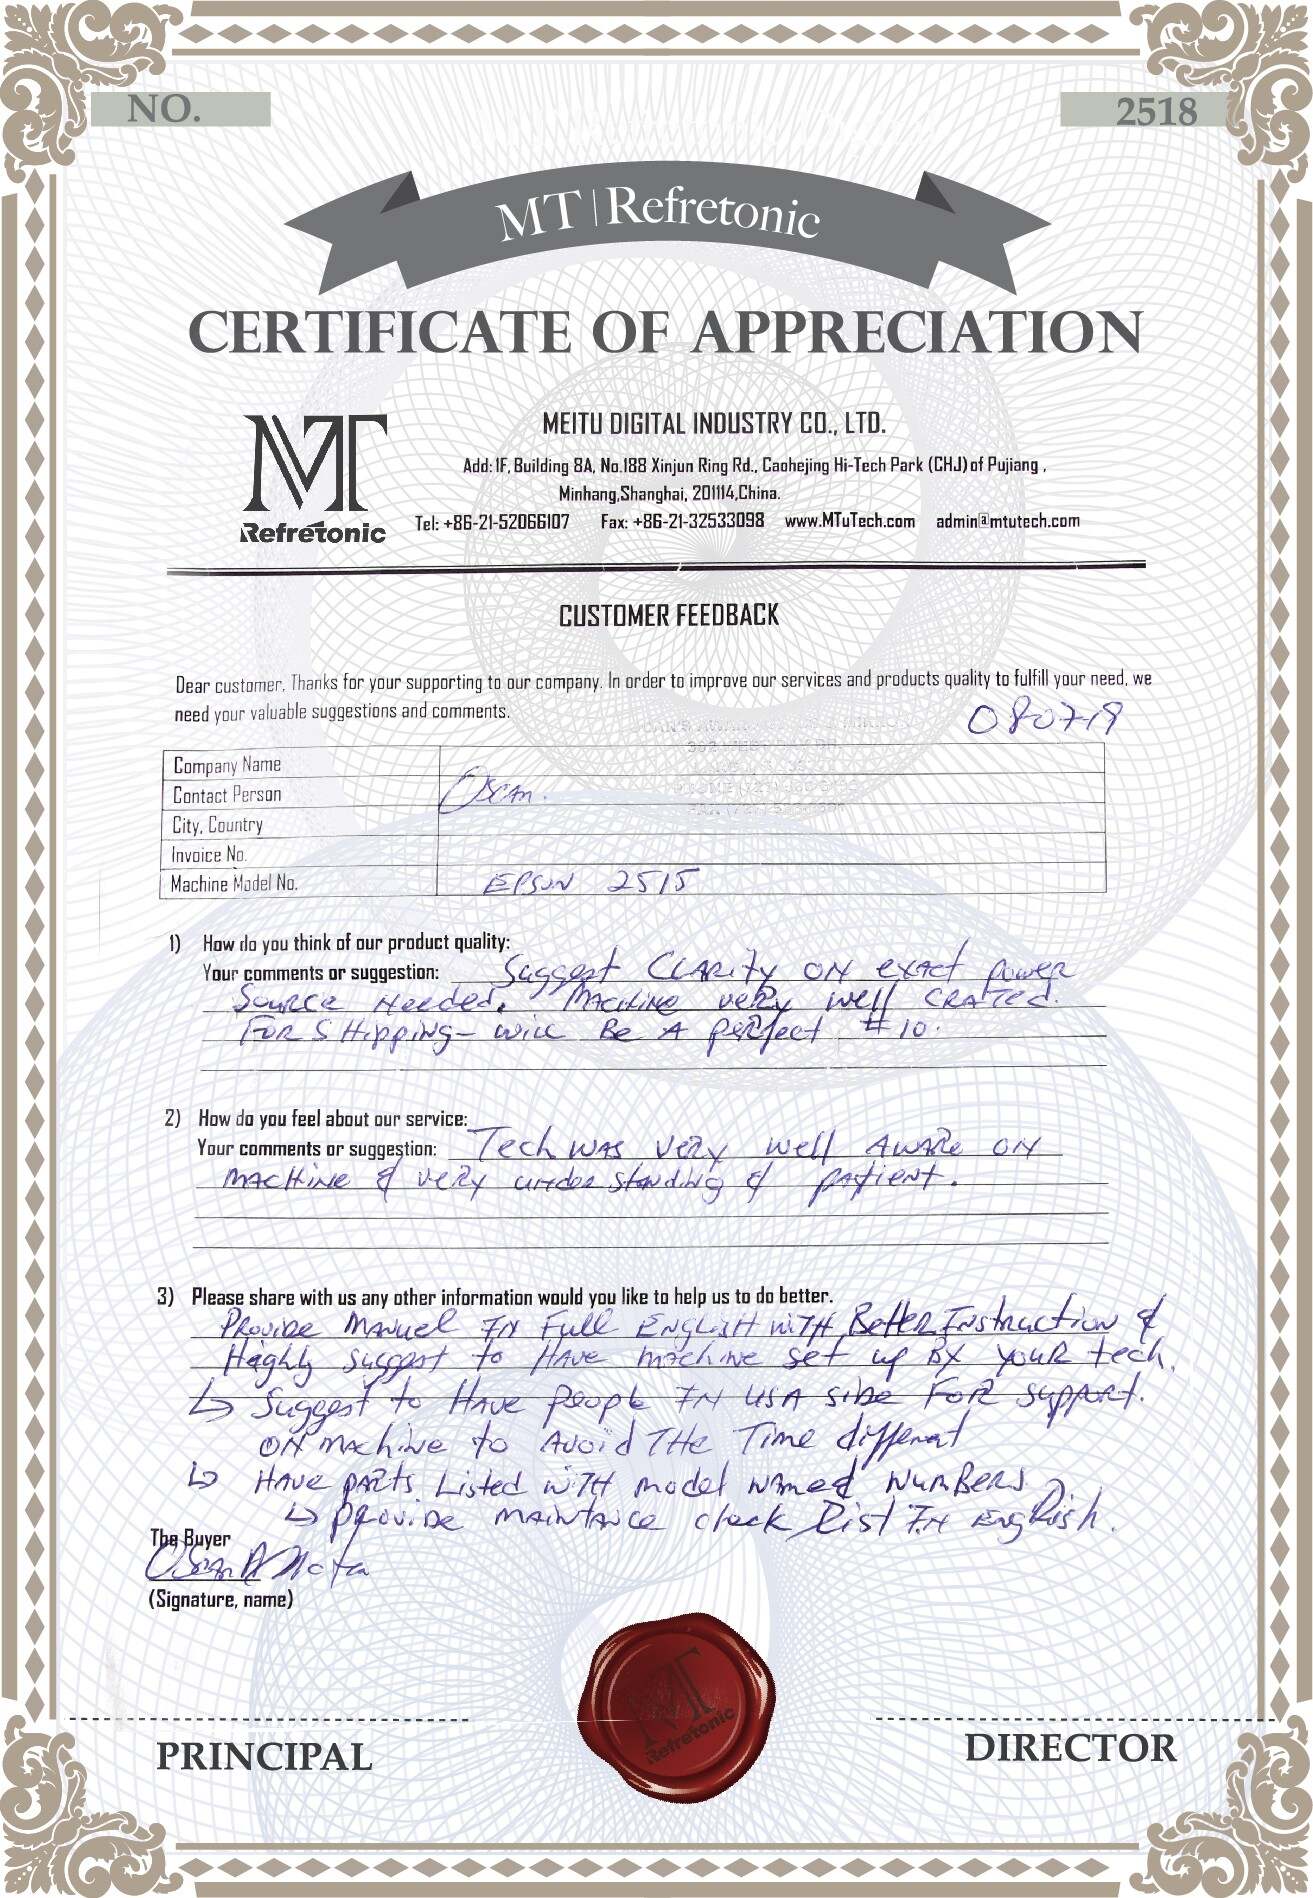 NO.
2518
MT | Refretonic
CERTIFICATE OF APPRECIATION
MT
Refretonic
MEITU DIGITAL INDUSTRY CO., LTD.
Add: 1F, Building 8A, No.188 Xinjun Ring Rd., Caohejing Hi-Tech Park (CHJ) of Pujiang ,
Minhang,Shanghai, 201114,China.
Tel: +86-21-52066107 Fax: +86-21-32533098 www.MTuTech.com admin@mtutech.com
CUSTOMER FEEDBACK
Dear customer, Thanks for your supporting to our company. In order to improve our services and products quality to fulfill your need, we
need your valuable suggestions and comments.
080719
Company Name
Contact Person Oscar.
City, Country
Invoice No.
Machine Model No. EPSON 2515
1) How do you think of our product quality:
Your comments or suggestion: Suggest CLARity ON exact power
Source Needed. Machine very well CRATed.
FOR SHipping - will Be A perfect #10.
2) How do you feel about our service:
Your comments or suggestion: Tech WAS Very well AWARe ON
MACHiNe & very understanding & patient.
3) Please share with us any other information would you like to help us to do better.
Provide Manuel IN Full ENGLisH WITH Better Instruction &
Highly suggest to HAVe machine set up BY YOUR tech.
↳ Suggest to HAVe people IN USA side FOR support.
ON MAchiNe to Avoid THe Time different
↳ HAVe pARTS Listed WITH model NAmed NUMBeRS
↳ PROViDe MAiNTANCe check List IN English.
The Buyer
Oscar A Mota
(Signature, name)
MT
Refretonic
PRINCIPAL
DIRECTOR